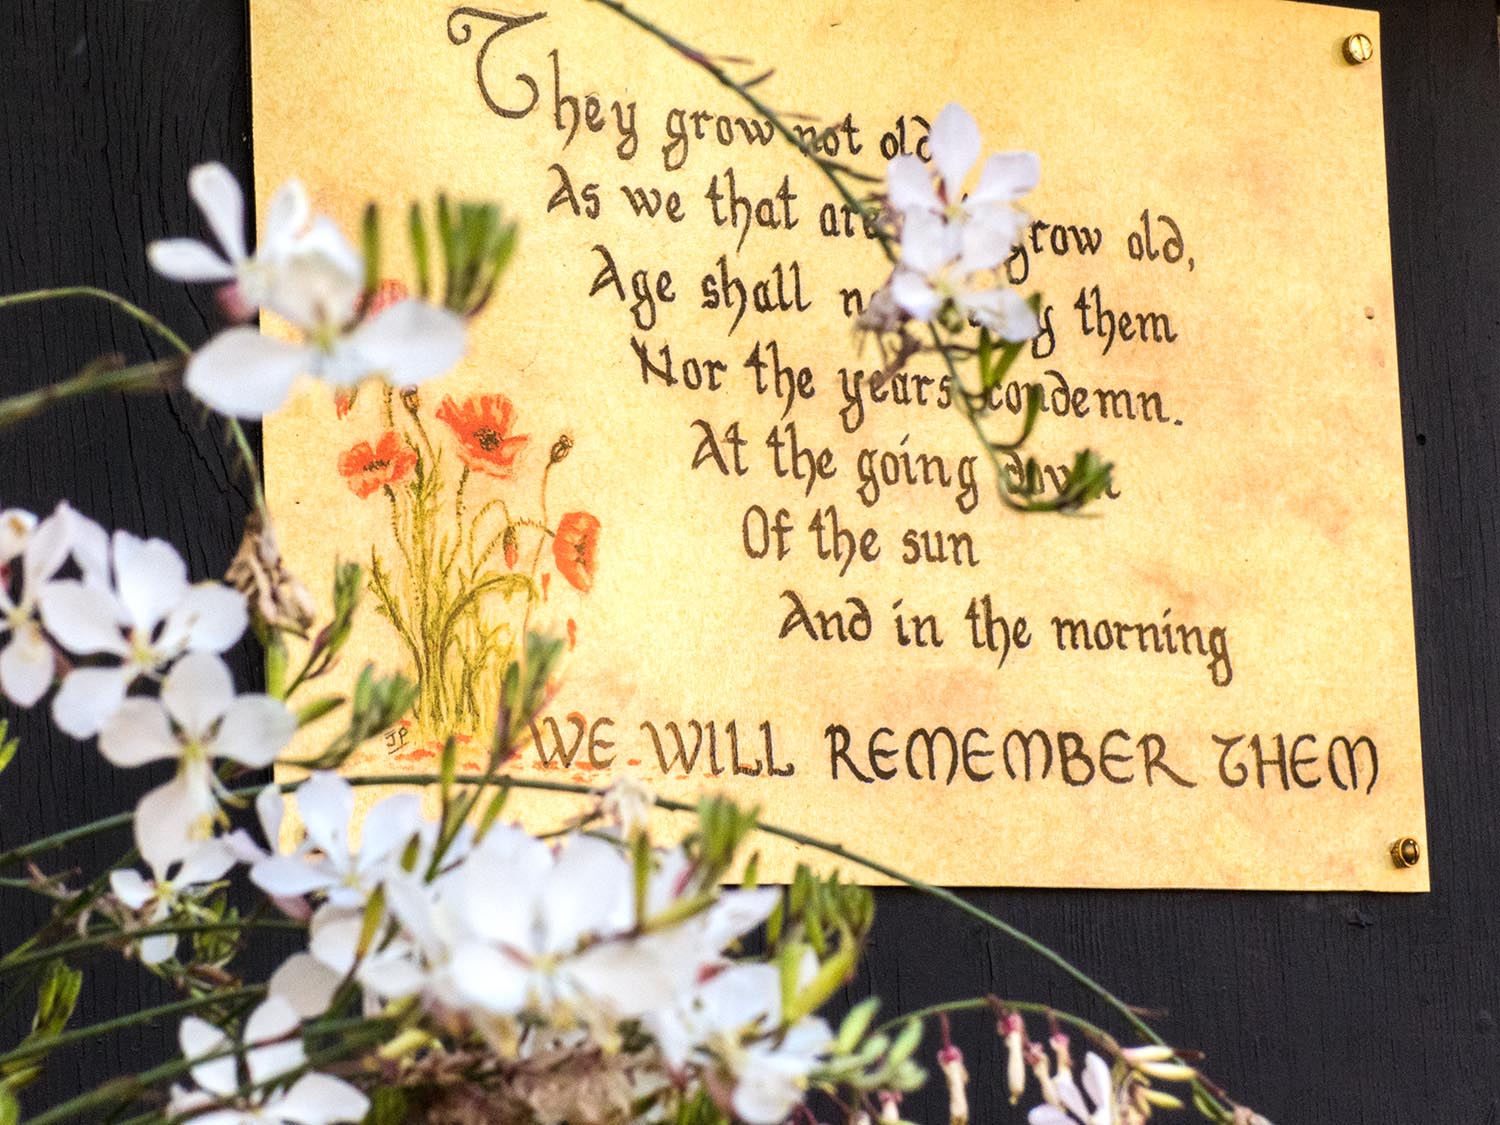 They grow not old
As we that are grow old,
Age shall them
Nor the years condemn.
At the going down
Of the sun
And in the morning
JP
WE WILL REMEMBER THEM